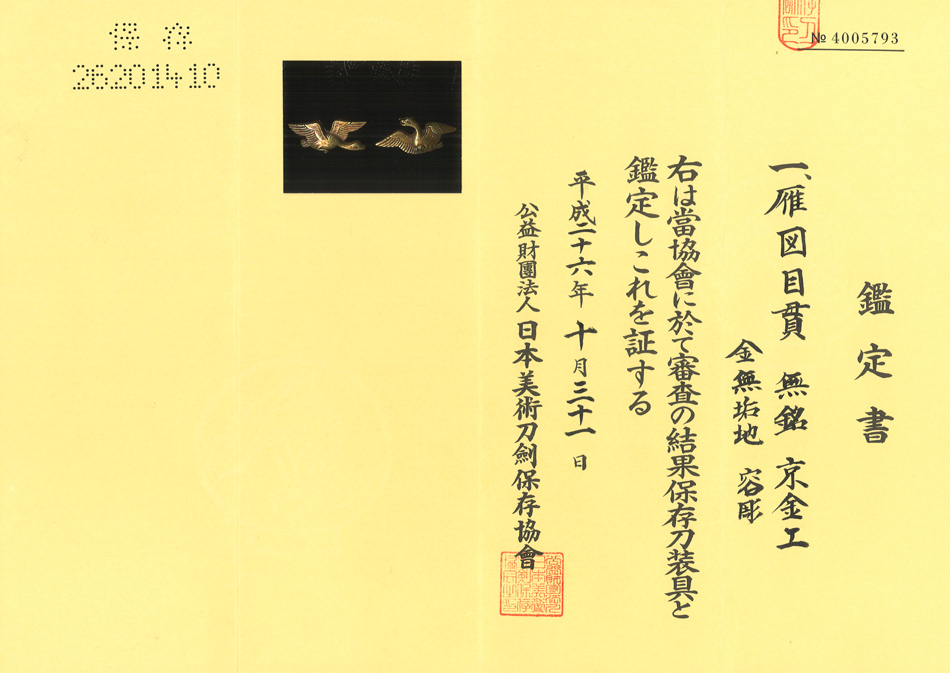 鑑定書
一、雁図目貫 無銘 京金工
金無垢地 容彫
右は當協會に於て審査の結果保存刀装具と
鑑定しこれを証する
平成二十六年十月三十一日
公益財團法人日本美術刀劍保存協會
№ 4005793
保存
26201410